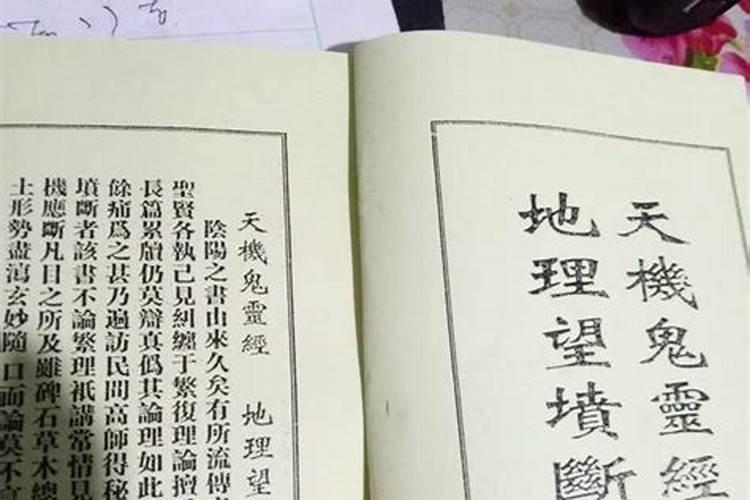 天機鬼靈經
地理望墳斷
天機鬼靈經 地理望
陰陽之書由來久矣有所流傳
聖賢各執己見糾纏于繁復理論擅
長篇累牘仍莫辯真僞其論理如此
餘痛爲之甚乃遍訪民間高師得秘
墳斷者該書不論繁理衹講常情見
機應斷凡目之所及雖碑石草木總
土形勢盡玄妙隨口面論莫不